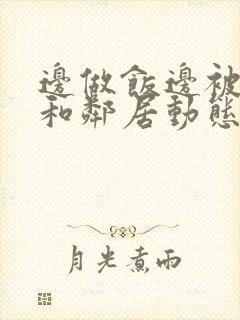 邊做飯邊被
和鄰居動態
月光煮雨